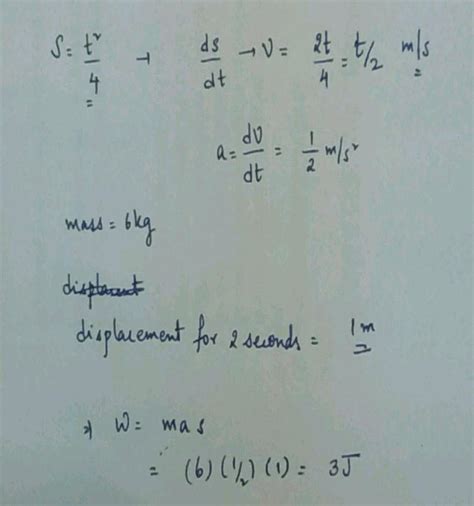 S = t²/4 → ds/dt → V = 2t/4 = t/2 m/s
a = dV/dt = 1/2 m/s²
mass = 6kg
displacement for 2 seconds = 1m
⇒ W = mas
= (6) (1/2) (1) = 3J